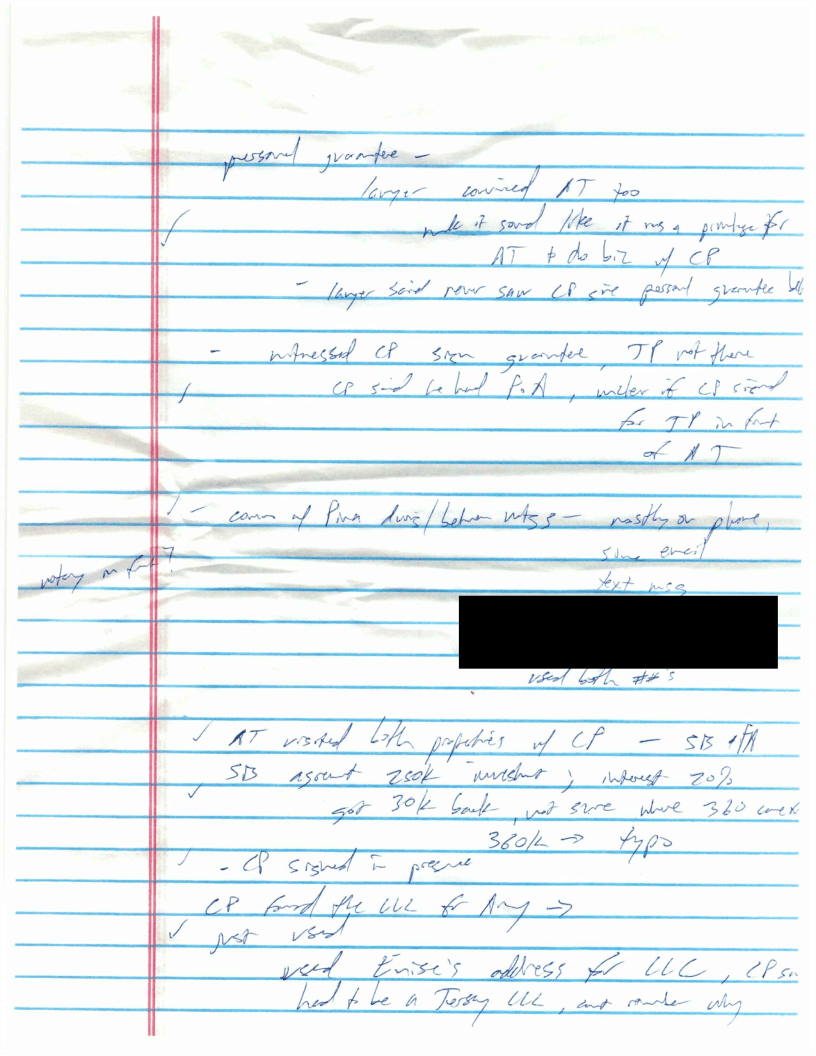 personal guarantee -
lawyer convinced AT too
make it sound like it was a privilege for
AT to do biz w/ CP
- lawyer said never saw CP give personal guarantee
- witnessed CP sign guarantee, JP not there
CP said he had PoA, CP signed
for JP in front
of AT
- comm w/ during/between mtgs - mostly on phone,
some email
notary in front?
text msg
used both ##'s
AT visited both properties w/ CP - SB + PA
SB agreement 250k investment; interest 20%
got 30k back, not sure where 360
360k → typo
- CP signed in presence
CP formed the LLC for Amy →
just used
used address for LLC, CP
had to be a Jersey LLC, why